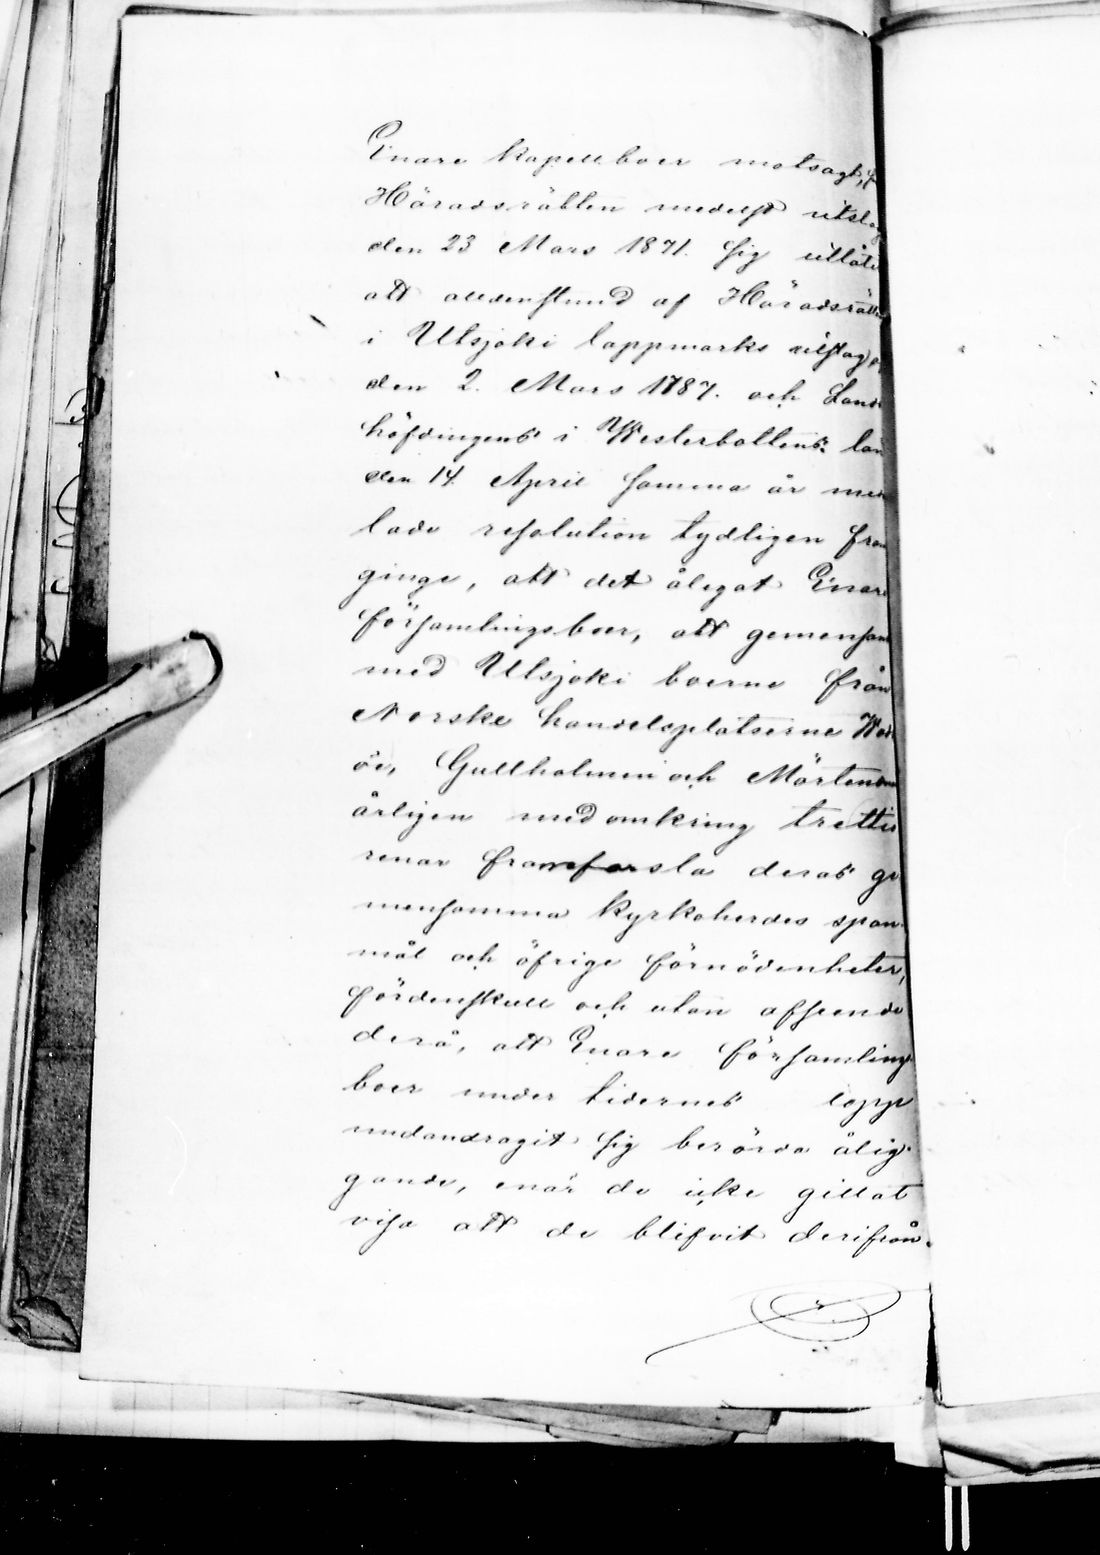 Enare kapellboer motsagt,
Häradsrätten medelst utslag
den 23 Mars 1871. sig utlåtit
att alldenstund af Häradsrätten
i Utsjoki lappmarks utslag
den 2. Mars 1787. och Lands
höfdingens i Westerbottens län
den 14. April samma år med
lade resolution tydligen fram
ginge, att det ålegat Enare
församlingsboer, att gemensamt
med Utsjoki boerne från
Norske handelsplatserne Wad
öe, Gullholmen och Mortensnäs
årligen med omkring trettio
renar framforsla deras ge
mensamma kyrkoherdes span-
mål och öfrige förnödenheter,
fördenskull och utan afseende
derå, att Enare församlings
boer under tidernes lopp
undandragit sig berörda ålig-
gande, enär de icke gittat
visa att de blifvit derifrån